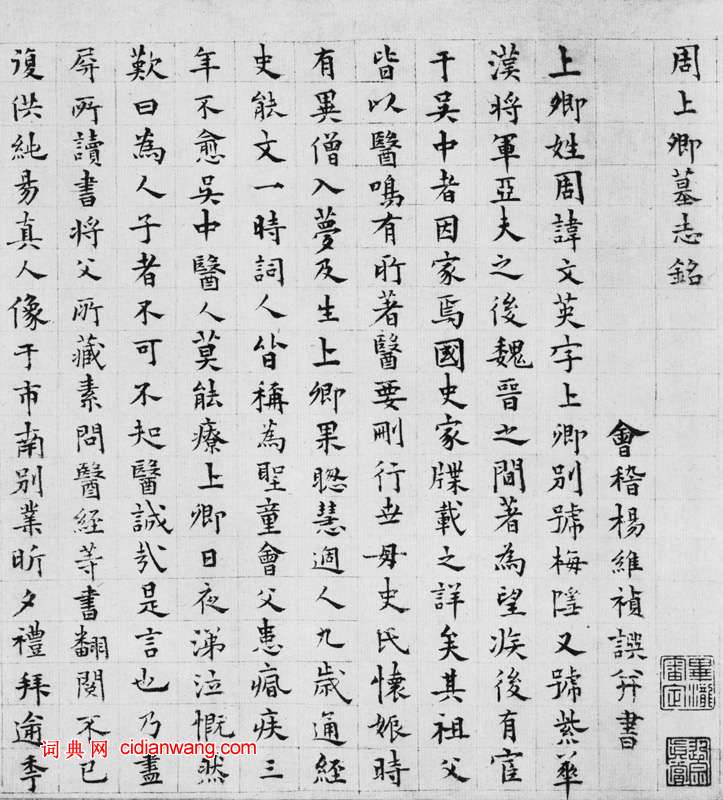 周上卿墓志銘
會稽楊維禎譔并書
上卿姓周諱文英字上卿別號梅隱又號紫華
漢將軍亞夫之後魏晉之間著為望族後有宦
于吳中者因家焉國史家牒載之詳矣其祖父
皆以醫鳴有所著醫要刪行世母史氏懷娠時
有異僧入夢及生上卿果聰慧過人九歲通經
史能文一時詞人皆稱為聖童會父患痼疾三
年不愈吳中醫人莫能療上卿日夜涕泣慨然
歎曰為人子者不可不知醫誠哉是言也乃盡
屏所讀書將父所藏素問醫經等書翻閱不已
復供純昜真人像于市南別業昕夕禮拜逾季
畢瀧審定
词典网 cidianwang.com